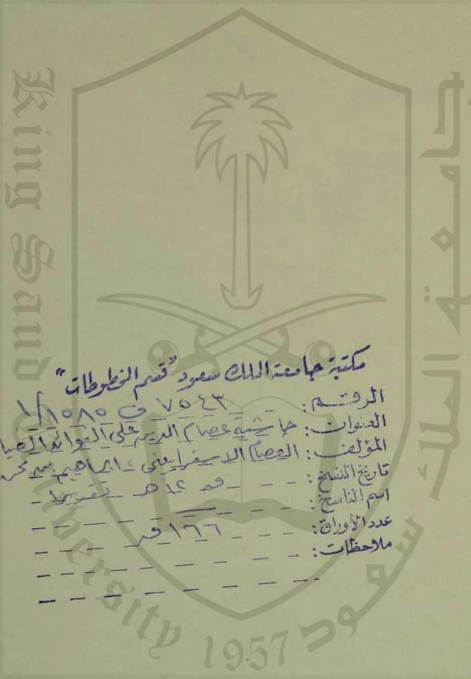 King Saud University 1957
جامعة الملك سعود
مكتبة جامعة الملك سعود "قسم المخطوطات"
الرقم: ٧٥٤٣ ف ١٥٨٥/١
العنوان: حاشية عصام الدين على الفوائد الضيا
المؤلف: العصام الاسفرايني، ابراهيم بن محمد
تاريخ النسخ: ق ١٢ هـ تقديرا
اسم الناسخ:
عدد الأوراق: ١٦٦ ق
ملاحظات: